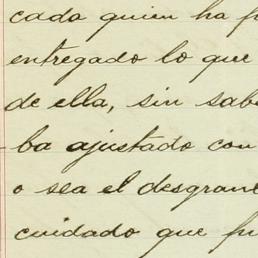 cada quien ha p
entregado lo que
de ella, sin sab
ba ajustado con
o sea el desgran
cuidado que fu